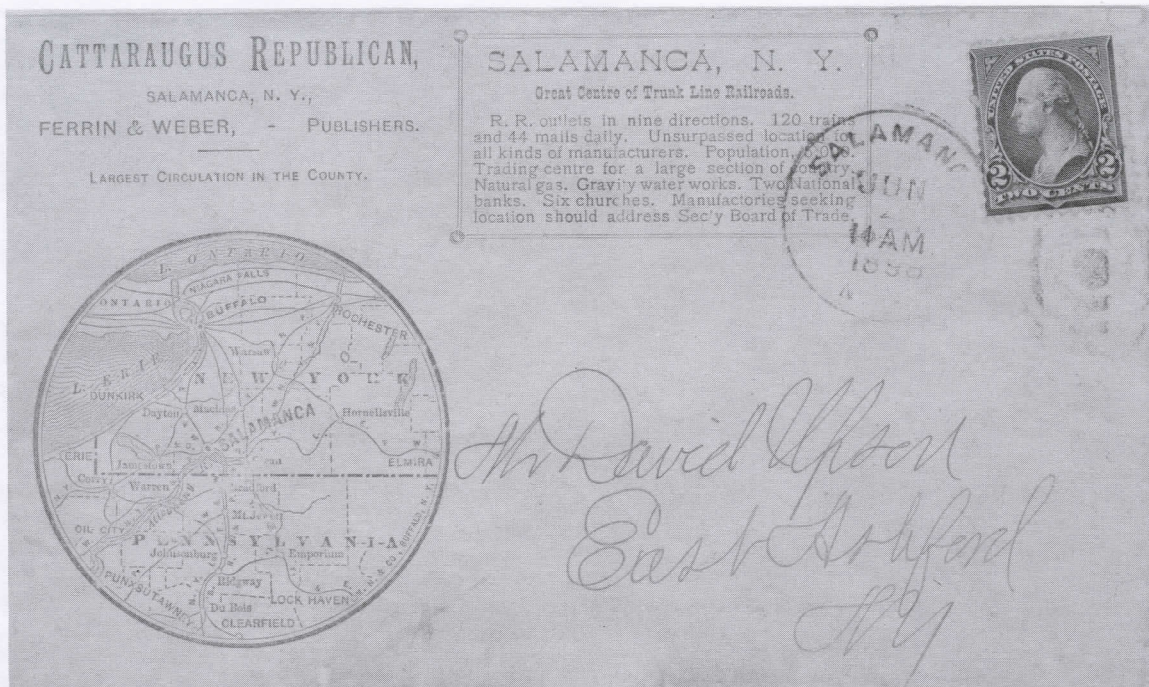 CATTARAUGUS REPUBLICAN,
SALAMANCA, N. Y.,
FERRIN & WEBER, - PUBLISHERS.
LARGEST CIRCULATION IN THE COUNTY.
SALAMANCA, N. Y.
Great Centre of Trunk Line Railroads.
R. R. outlets in nine directions. 120 trains
and 44 mails daily. Unsurpassed location for
all kinds of manufacturers. Population,
Trading centre for a large section of country.
Natural gas. Gravity water works. Two National
banks. Six churches. Manufactories seeking
location should address Sec'y Board of Trade.
UNITED STATES POSTAGE
2 2
TWO CENTS
SALAMANC
JUN
11 AM
N
L. ONTARIO
NIAGARA FALLS
ONTARIO
BUFFALO
ROCHESTER
Warsaw
L. ERIE
NEW YORK
DUNKIRK
Dayton Machias
SALAMANCA
Hornellsville
ERIE
Jamestown
ELMIRA
Corry
Warren
Bradford
Allegheny
Mt. Jewett
OIL CITY
PENNSYLVANIA
Johnsonburg
Emporium
PUNXSUTAWNEY
Ridgway
LOCK HAVEN
Du Bois
CLEARFIELD
BUFFALO, N. Y.
Mr David Upson
East Ashford
NY